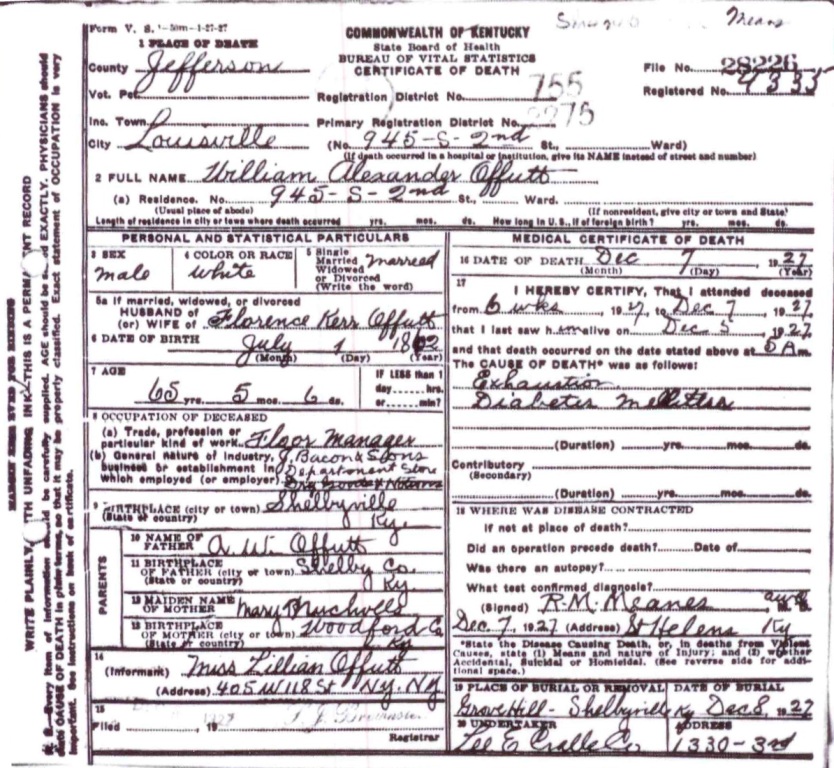 Form V. S. 1-50m-1-27-27
COMMONWEALTH OF KENTUCKY
State Board of Health
BUREAU OF VITAL STATISTICS
CERTIFICATE OF DEATH
Means
1 PLACE OF DEATH
County Jefferson
Vot. Pct.
Inc. Town
City Louisville
File No. 28226
Registered No. 4333
Registration District No. 755
Primary Registration District No. 2275
(No. 945-S-2nd St., Ward)
(If death occurred in a hospital or institution, give its NAME instead of street and number)
2 FULL NAME William Alexander Offutt
(a) Residence. No. 945-S-2nd St., Ward.
(Usual place of abode) (If nonresident, give city or town and State)
Length of residence in city or town where death occurred yrs. mos. ds. How long in U. S., if of foreign birth? yrs. mos. ds.
PERSONAL AND STATISTICAL PARTICULARS
3 SEX male
4 COLOR OR RACE white
5 Single Married Widowed or Divorced (Write the word) married
5a If married, widowed, or divorced
HUSBAND of
(or) WIFE of Florence Kerr Offutt
6 DATE OF BIRTH July 1 1862
(Month) (Day) (Year)
7 AGE 65 yrs. 5 mos. 6 ds.
IF LESS than 1 day hrs. or min?
8 OCCUPATION OF DECEASED
(a) Trade, profession or particular kind of work Floor Manager
(b) General nature of Industry, business or establishment in which employed (or employer) J. Bacon & Sons Department Store
Dry Goods & Notions
9 BIRTHPLACE (city or town) Shelbyville
(State or country) Ky.
PARENTS
10 NAME OF FATHER A. W. Offutt
11 BIRTHPLACE OF FATHER (city or town) Shelby Co.
(State or country) Ky.
12 MAIDEN NAME OF MOTHER Mary
13 BIRTHPLACE OF MOTHER (city or town) Woodford Co
(State or country) Ky
14 (Informant) Miss Lillian Offutt
(Address) 405 W 118 St N.Y. N.Y.
15
Filed , 19
Registrar
MEDICAL CERTIFICATE OF DEATH
16 DATE OF DEATH Dec 7 1927
(Month) (Day) (Year)
17 I HEREBY CERTIFY, That I attended deceased
from 6 wks 1927, to Dec 7, 1927,
that I last saw him alive on Dec 5, 1927,
and that death occurred on the date stated above at 5 A m.
The CAUSE OF DEATH* was as follows:
Exhaustion
Diabetes Mellitus
(Duration) yrs. mos. ds.
Contributory
(Secondary)
(Duration) yrs. mos. ds.
18 WHERE WAS DISEASE CONTRACTED
If not at place of death?
Did an operation precede death? Date of
Was there an autopsy?
What test confirmed diagnosis?
(Signed) R. M. Meanes
Dec 7, 1927 (Address) St Helens Ky
*State the Disease Causing Death, or, in deaths from Violent
Causes, state (1) Means and nature of Injury; and (2) whether
Accidental, Suicidal or Homicidal. (See reverse side for addi-
tional space.)
19 PLACE OF BURIAL OR REMOVAL
Grove Hill - Shelbyville Ky
DATE OF BURIAL
Dec 8, 1927
20 UNDERTAKER
Lee E Cralle Co
ADDRESS
1330-3rd
WRITE PLAINLY, WITH UNFADING INK—THIS IS A PERMANENT RECORD
N. B.—Every item of information should be carefully supplied. AGE should be stated EXACTLY. PHYSICIANS should
state CAUSE OF DEATH in plain terms, so that it may be properly classified. Exact statement of OCCUPATION is very
important. See instructions on back of certificate.